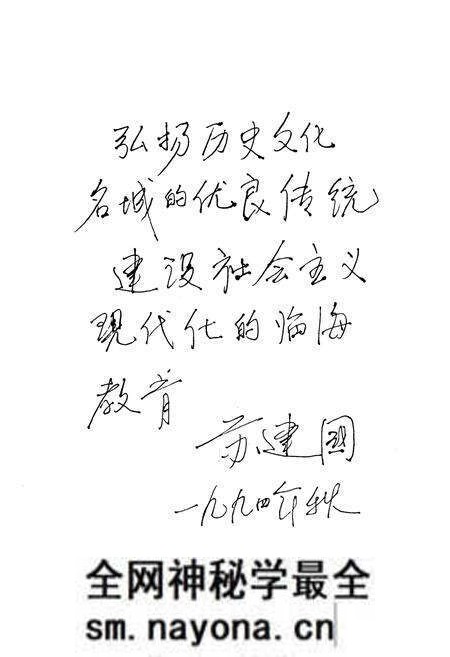 弘扬历史文化
名城的优良传统
建设社会主义
现代化的临海
教育
苏建国
一九九四年秋
全网神秘学最全
sm.nayona.cn